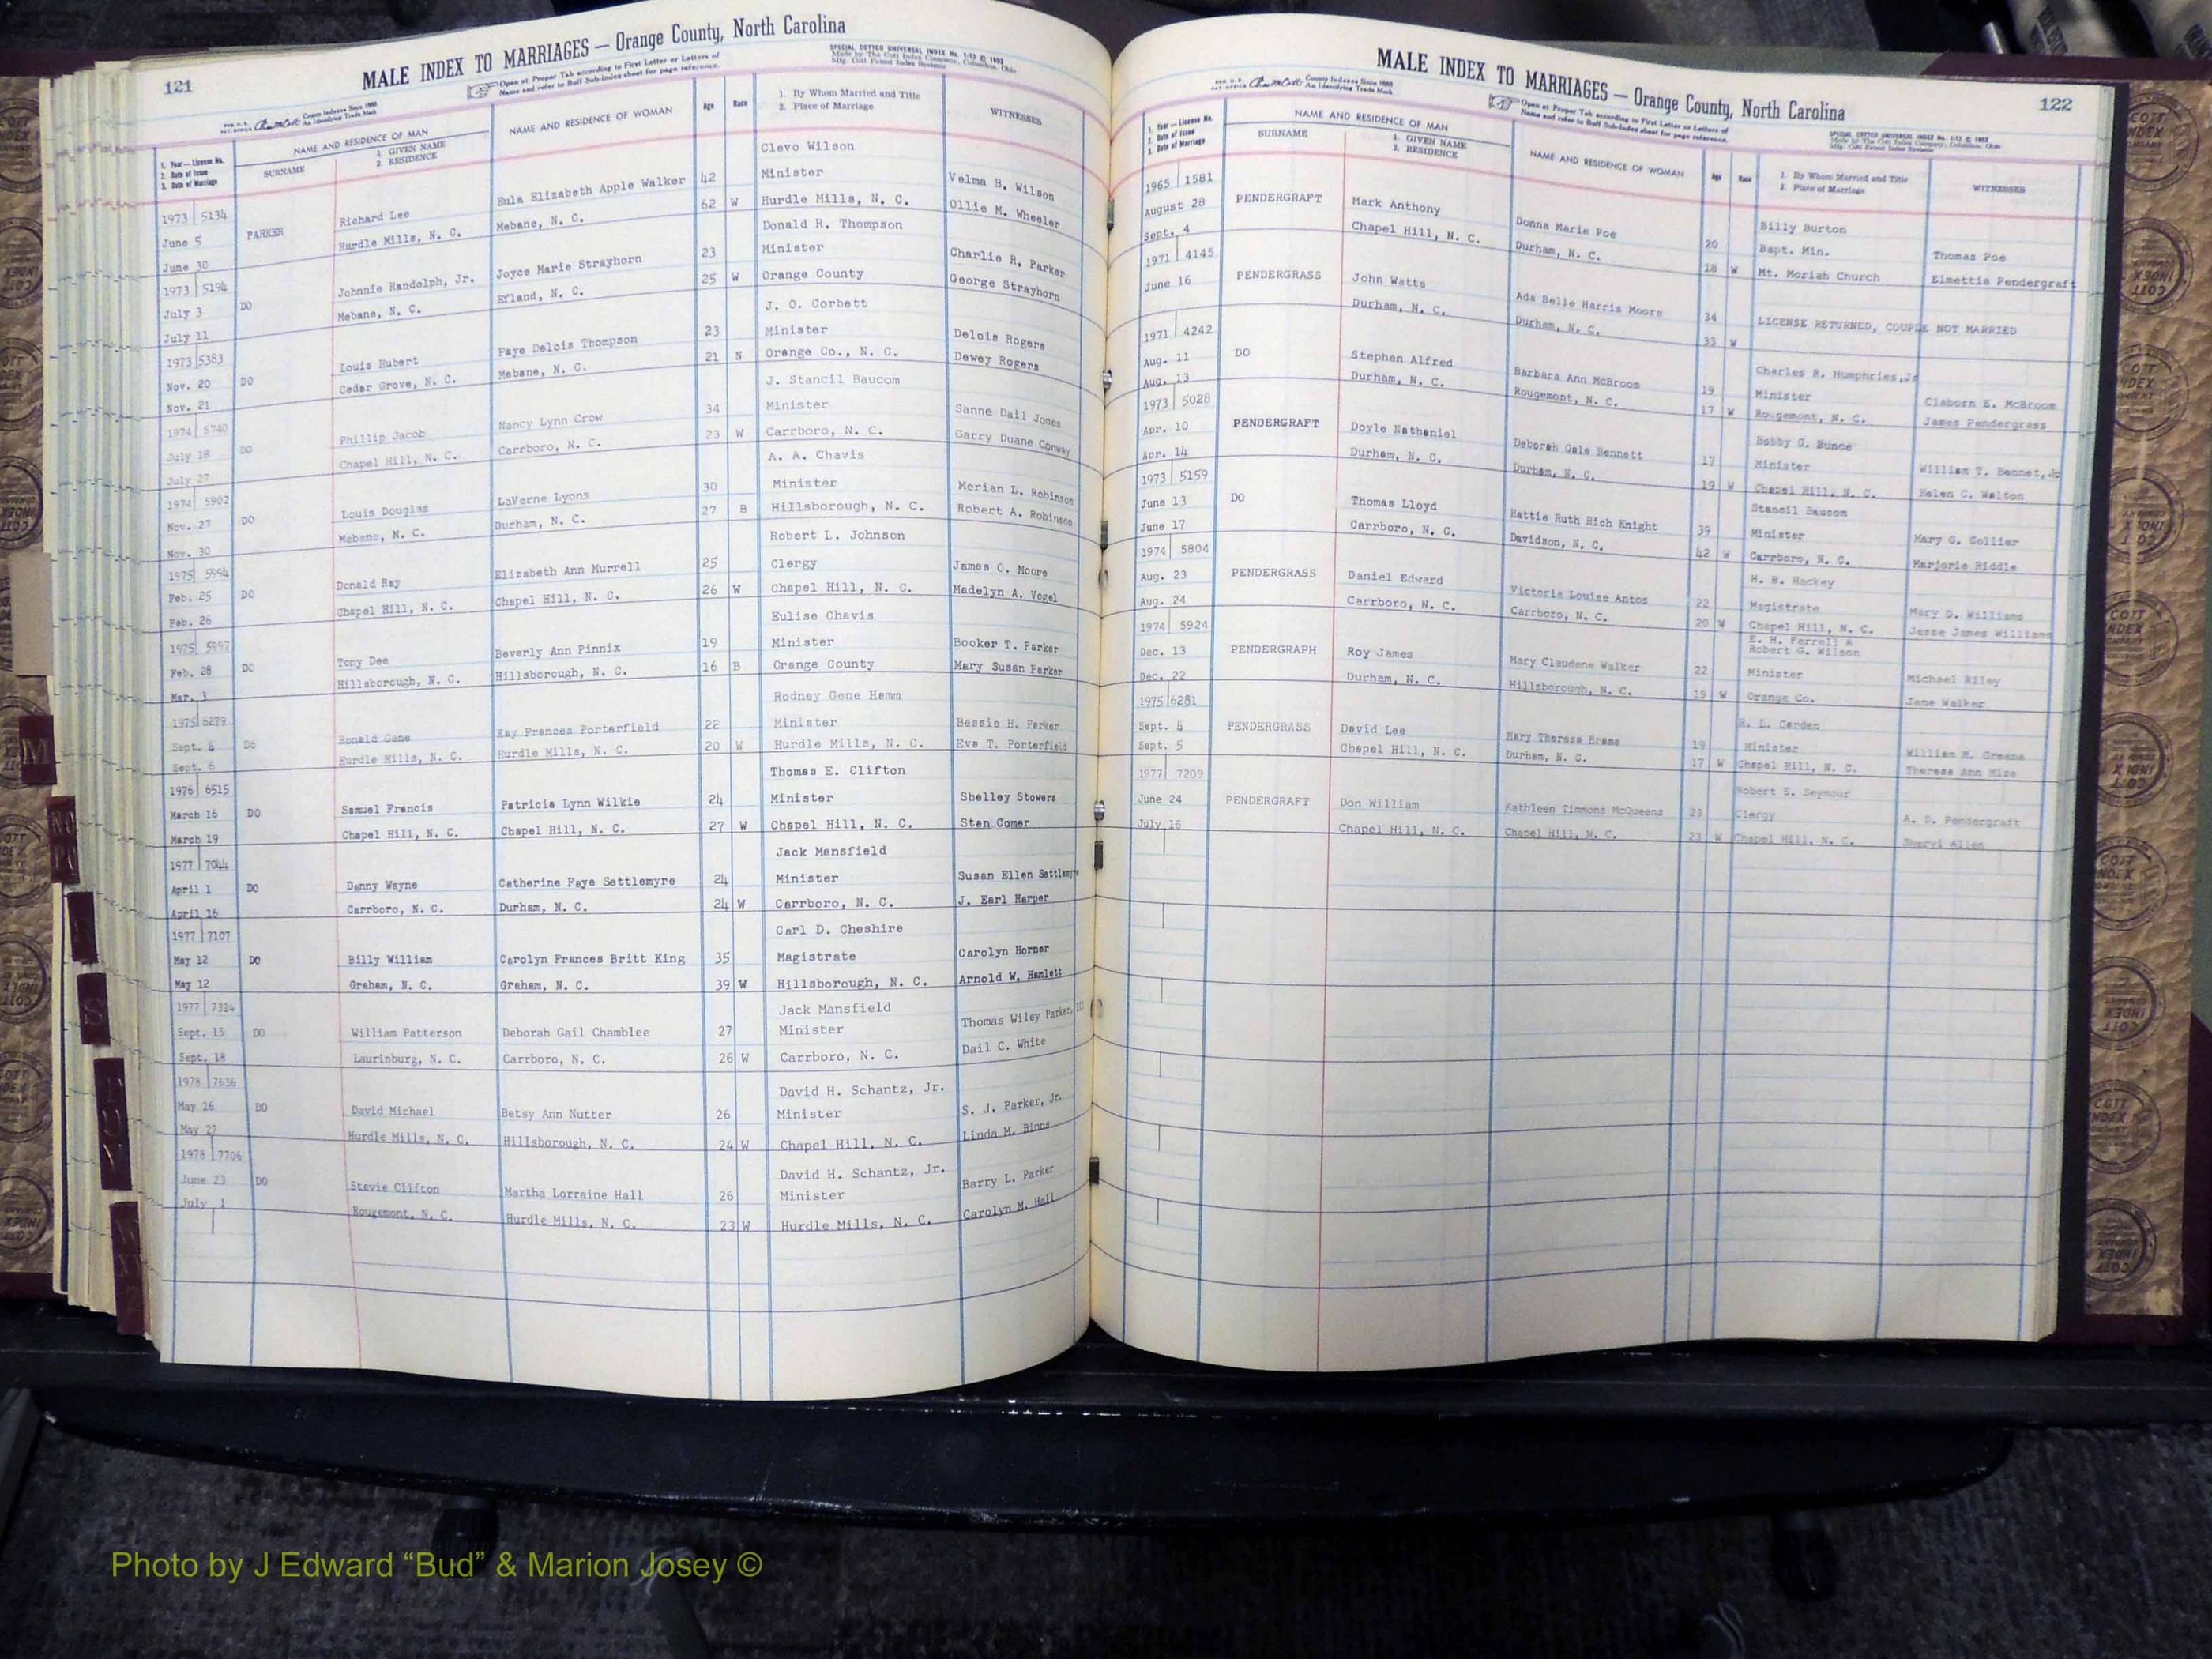 121
MALE INDEX TO MARRIAGES — Orange County, North Carolina
Open at Proper Tab according to First Letter or Letters of
Name and refer to Buff Sub-Index sheet for page reference.
SPECIAL COTTCO UNIVERSAL INDEX
Made by The Cott Index Company, Columbus, Ohio
County Indexes Since 1888
An Identifying Trade Mark
1. Year — License No.
2. Date of Issue
3. Date of Marriage
NAME AND RESIDENCE OF MAN
SURNAME
1. GIVEN NAME
2. RESIDENCE
NAME AND RESIDENCE OF WOMAN
Age
Race
1. By Whom Married and Title
2. Place of Marriage
WITNESSES
Clevo Wilson
1973 5134 Richard Lee Eula Elizabeth Apple Walker 42 Minister Velma B. Wilson
June 5 PARKER Hurdle Mills, N. C. Mebane, N. C. 62 W Hurdle Mills, N. C. Ollie M. Wheeler
June 30
Donald R. Thompson
1973 5194 Johnnie Randolph, Jr. Joyce Marie Strayhorn 23 Minister Charlie R. Parker
July 3 DO Mebane, N. C. Efland, N. C. 25 W Orange County George Strayhorn
July 11
J. O. Corbett
1973 5383 Louis Hubert Faye Delois Thompson 23 Minister Delois Rogers
Nov. 20 DO Cedar Grove, N. C. Mebane, N. C. 21 N Orange Co., N. C. Dewey Rogers
Nov. 21
J. Stancil Baucom
1974 5740 Phillip Jacob Nancy Lynn Crow 34 Minister Sanne Dail Jones
July 18 DO Chapel Hill, N. C. Carrboro, N. C. 23 W Carrboro, N. C. Garry Duane Conway
July 27
A. A. Chavis
1974 5902 Louis Douglas LaVerne Lyons 30 Minister Merian L. Robinson
Nov. 27 DO Mebane, N. C. Durham, N. C. 27 B Hillsborough, N. C. Robert A. Robinson
Nov. 30
Robert L. Johnson
1975 5994 Donald Ray Elizabeth Ann Murrell 25 Clergy James C. Moore
Feb. 25 DO Chapel Hill, N. C. Chapel Hill, N. C. 26 W Chapel Hill, N. C. Madelyn A. Vogel
Feb. 26
Eulise Chavis
1975 5997 Tony Dee Beverly Ann Pinnix 19 Minister Booker T. Parker
Feb. 28 DO Hillsborough, N. C. Hillsborough, N. C. 16 B Orange County Mary Susan Parker
Mar. 1
Rodney Gene Hamm
1975 6279 Ronald Gene Kay Frances Porterfield 22 Minister Bessie H. Parker
Sept. 4 DO Hurdle Mills, N. C. Hurdle Mills, N. C. 20 W Hurdle Mills, N. C. Eva T. Porterfield
Sept. 6
Thomas E. Clifton
1976 6515 Samuel Francis Patricia Lynn Wilkie 24 Minister Shelley Stowers
March 16 DO Chapel Hill, N. C. Chapel Hill, N. C. 27 W Chapel Hill, N. C. Stan Comer
March 19
Jack Mansfield
1977 7044 Danny Wayne Catherine Faye Settlemyre 24 Minister Susan Ellen Settlemyre
April 1 DO Carrboro, N. C. Durham, N. C. 24 W Carrboro, N. C. J. Earl Harper
April 16
Carl D. Cheshire
1977 7107 Billy William Carolyn Frances Britt King 35 Magistrate Carolyn Horner
May 12 DO Graham, N. C. Graham, N. C. 39 W Hillsborough, N. C. Arnold W. Hamlett
May 12
Jack Mansfield
1977 7324 William Patterson Deborah Gail Chamblee 27 Minister Thomas Wiley Parker, III
Sept. 15 DO Laurinburg, N. C. Carrboro, N. C. 26 W Carrboro, N. C. Dail C. White
Sept. 18
David H. Schantz, Jr.
1978 7636 David Michael Betsy Ann Nutter 26 Minister S. J. Parker, Jr.
May 26 DO Hurdle Mills, N. C. Hillsborough, N. C. 24 W Chapel Hill, N. C. Linda M. Binns
May 27
David H. Schantz, Jr.
1978 7706 Stevie Clifton Martha Lorraine Hall 26 Minister Barry L. Parker
June 23 DO Rougemont, N. C. Hurdle Mills, N. C. 23 W Hurdle Mills, N. C. Carolyn M. Hall
July 1
MALE INDEX TO MARRIAGES — Orange County, North Carolina
122
County Indexes Since 1888
An Identifying Trade Mark
Open at Proper Tab according to First Letter or Letters of
Name and refer to Buff Sub-Index sheet for page reference.
1. Year — License No.
2. Date of Issue
3. Date of Marriage
NAME AND RESIDENCE OF MAN
SURNAME
1. GIVEN NAME
2. RESIDENCE
NAME AND RESIDENCE OF WOMAN
Age
Race
1. By Whom Married and Title
2. Place of Marriage
WITNESSES
1965 1581 Billy Burton
August 28 PENDERGRAFT Mark Anthony Donna Marie Poe 20 Bapt. Min. Thomas Poe
Sept. 4 Chapel Hill, N. C. Durham, N. C. 18 W Mt. Moriah Church Elmettia Pendergraft
1971 4145
June 16 PENDERGRASS John Watts Ada Belle Harris Moore 34 LICENSE RETURNED, COUPLE NOT MARRIED
Durham, N. C. Durham, N. C. 33 W
1971 4242 Charles R. Humphries, Jr
Aug. 11 DO Stephen Alfred Barbara Ann McBroom 19 Minister Claborn E. McBroom
Aug. 13 Durham, N. C. Rougemont, N. C. 17 W Rougemont, N. C. James Pendergrass
1973 5028 Bobby G. Bunce
Apr. 10 PENDERGRAFT Doyle Nathaniel Deborah Gale Bennett 17 Minister William T. Bennet, Jr
Apr. 14 Durham, N. C. Durham, N. C. 19 W Chapel Hill, N. C. Helen C. Walton
1973 5159 Stancil Baucom
June 13 DO Thomas Lloyd Hattie Ruth Rich Knight 39 Minister Mary G. Collier
June 17 Carrboro, N. C. Davidson, N. C. 42 W Carrboro, N. C. Marjorie Riddle
1974 5804 H. B. Hackey
Aug. 23 PENDERGRASS Daniel Edward Victoria Louise Antos 22 Magistrate Mary D. Williams
Aug. 24 Carrboro, N. C. Carrboro, N. C. 20 W Chapel Hill, N. C. Jesse James Williams
1974 5924 E. H. Ferrell &
Robert G. Wilson
Dec. 13 PENDERGRAPH Roy James Mary Claudene Walker 22 Minister Michael Riley
Dec. 22 Durham, N. C. Hillsborough, N. C. 19 W Orange Co. Jane Walker
1975 6281 R. L. Carden
Sept. 4 PENDERGRASS David Lee Mary Theresa Brame 19 Minister William M. Greene
Sept. 5 Chapel Hill, N. C. Durham, N. C. 17 W Chapel Hill, N. C. Theresa Ann Mize
1977 7209 Robert E. Seymour
June 24 PENDERGRAFT Don William Kathleen Timmons McQueens 23 Clergy A. D. Pendergraft
July 16 Chapel Hill, N. C. Chapel Hill, N. C. 23 W Chapel Hill, N. C. Sheryl Allen
M
S
COTT
INDEX
Photo by J Edward “Bud” & Marion Josey ©